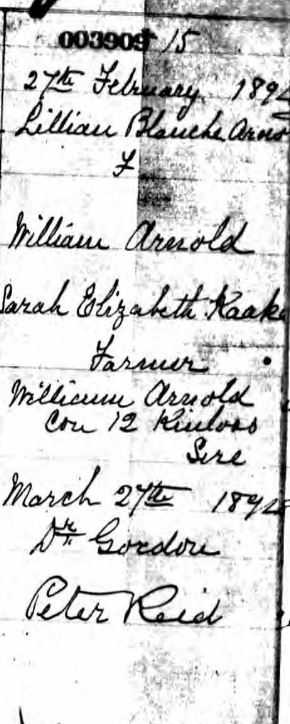 003909 15
27th February 189
Lillian Blanche Arno
F
William Arnold
Sarah Elizabeth Kaake
Farmer
William Arnold
Con 12 Kinloss
March 27th 189
Dr Gordon
Peter Reid